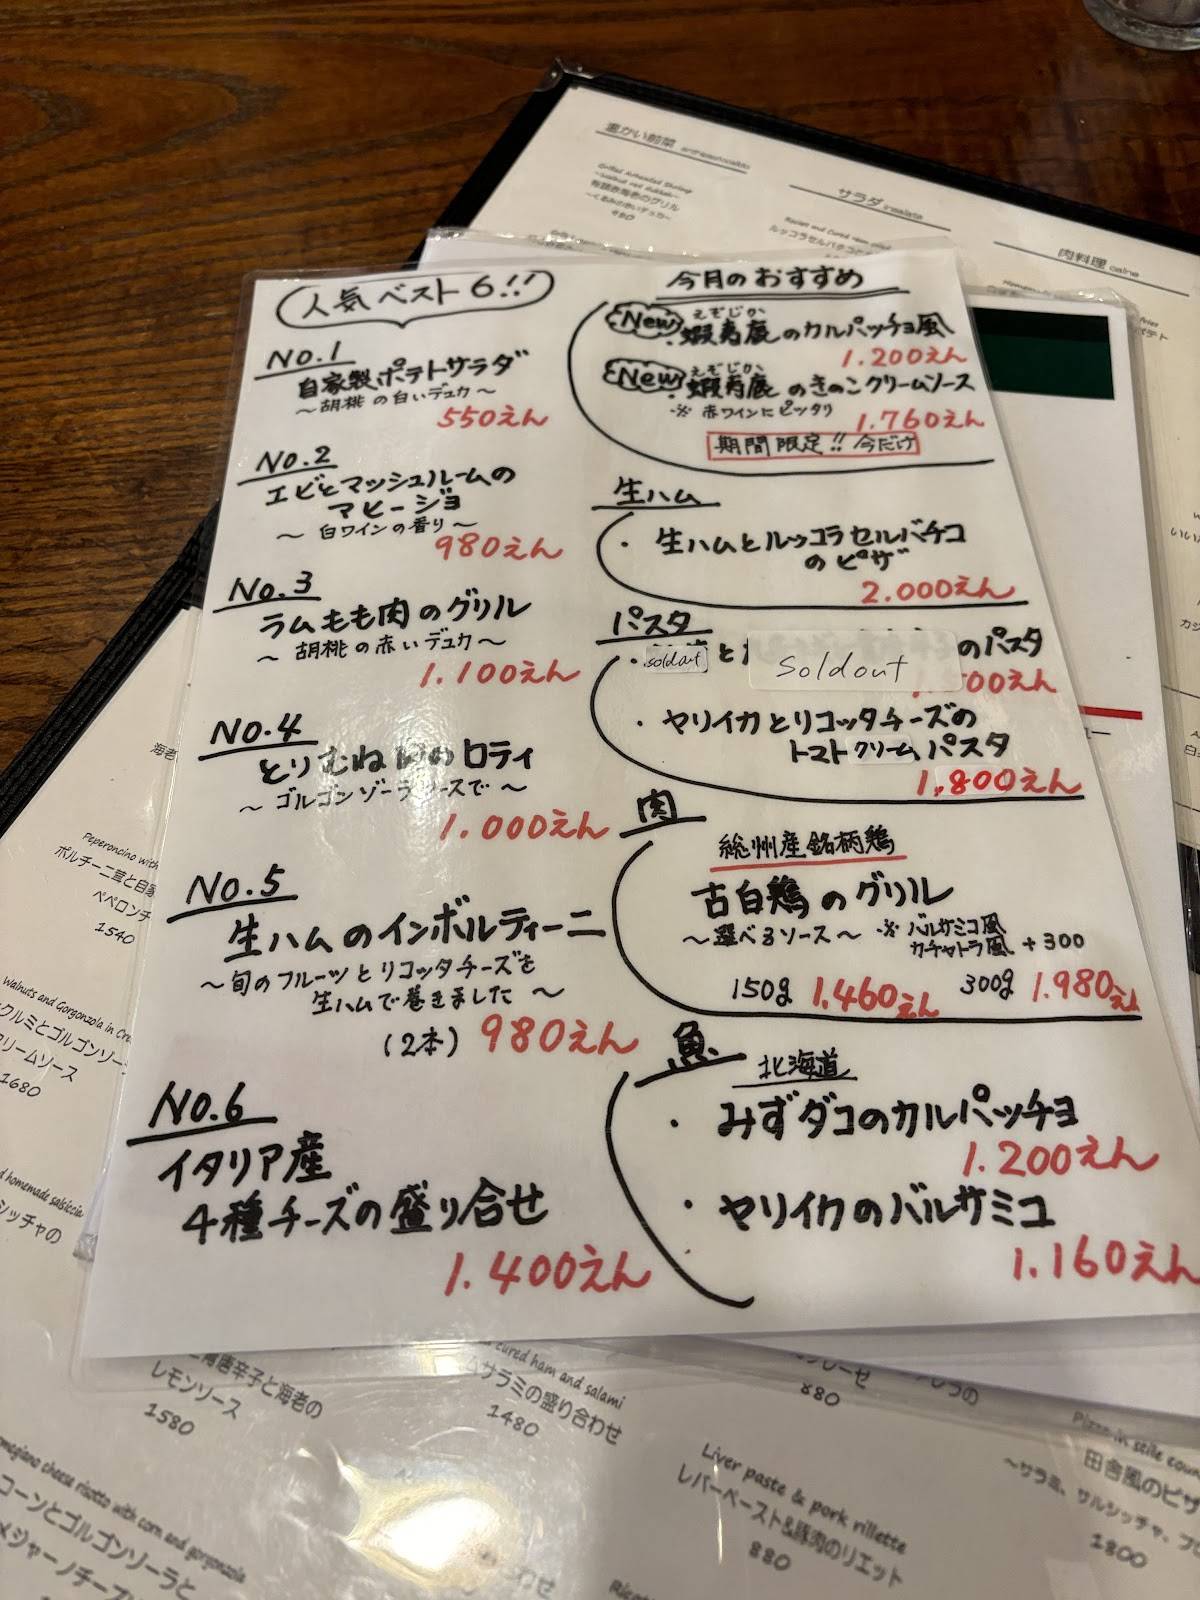 人気ベスト6!!
No.1
自家製ポテトサラダ
~胡桃の白いデュカ~
550えん
No.2
エビとマッシュルームの
アヒージョ
~白ワインの香り~
980えん
No.3
ラムもも肉のグリル
~胡桃の赤いデュカ~
1.100えん
No.4
とりむね肉のロティ
~ゴルゴンゾーラソースで~
1.000えん
No.5
生ハムのインボルティーニ
~旬のフルーツとリコッタチーズを
生ハムで巻きました~
(2本) 980えん
No.6
イタリア産
4種チーズの盛り合せ
1.400えん
今月のおすすめ
えぞじか
New ・蝦夷鹿のカルパッチョ風
1.200えん
えぞじか
New ・蝦夷鹿のきのこクリームソース
※赤ワインにピッタリ
1.760えん
期間限定!!今だけ
生ハム
・生ハムとルッコラセルバチコ
のピザ
2.000えん
パスタ
・soldout と Soldout のパスタ
00えん
・ヤリイカとリコッタチーズの
トマトクリームパスタ
1,800えん
肉
総州産銘柄鶏
古白鶏のグリル
~選べるソース~ ※バルサミコ風
カチャトラ風 +300
150g 1.460えん 300g 1.980えん
魚
北海道
・みずダコのカルパッチョ
1.200えん
・ヤリイカのバルサミコ
1.160えん
温かい前菜
有頭赤海老のグリル
~くるみの赤いデュカ~
サラダ
肉料理
海老
Peperoncino with
ポルチーニ茸と自家
ペペロンチ
1540
Walnuts and Gorgonzola in Cre
クルミとゴルゴンゾー
リームソース
1680
d homemade salsiccia
シッチャの
唐辛子と海老の
レモンソース
1580
cured ham and salami
ムサラミの盛り合わせ
1480
880
Liver paste & pork rillette
レバーペースト&豚肉のリエット
880
田舎風のピザ
~サラミ、サルシッチャ、
1800
megiano cheese risotto with corn and gorgonzola
コーンとゴルゴンゾーラと